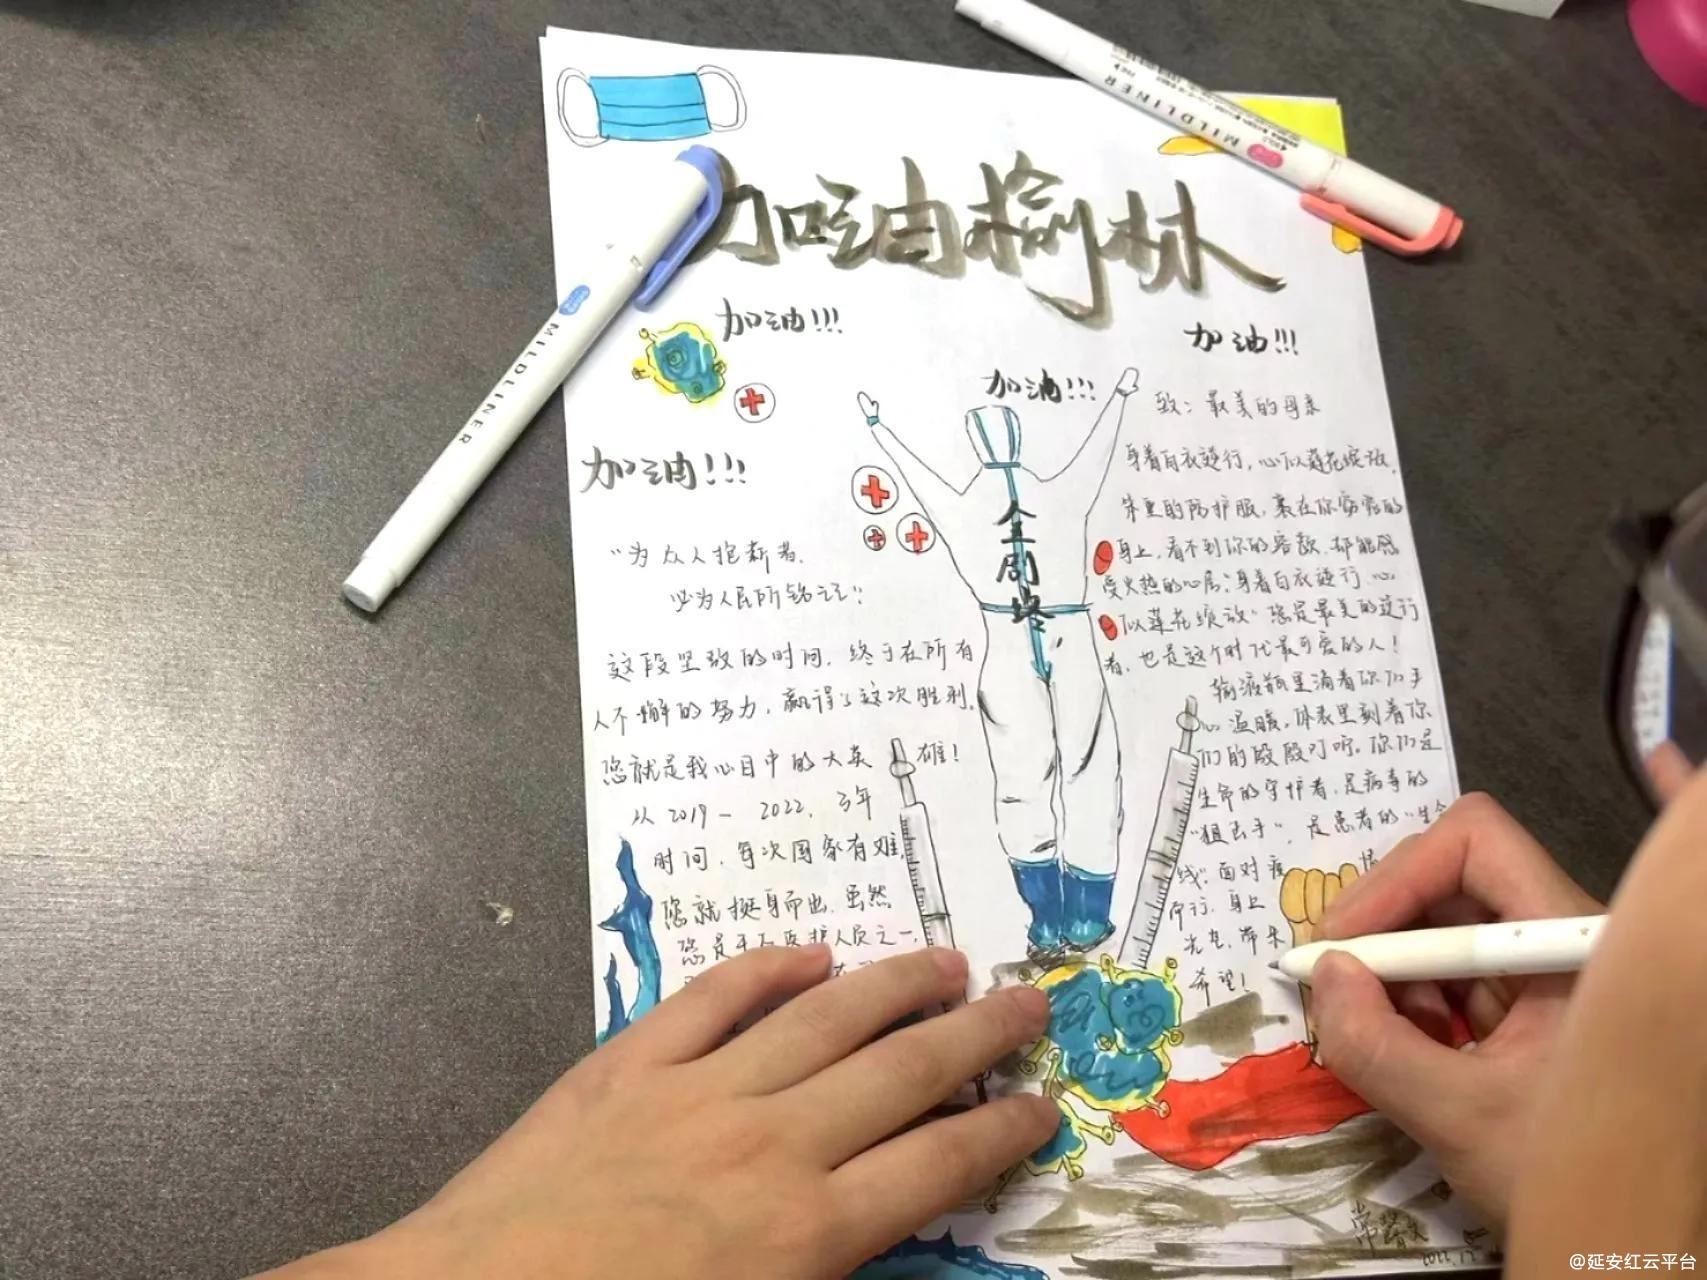 加油榆林
加油!!!
加油!!!
加油!!!
加油!!!
"为众人抱薪者,
必为人民所铭记"
这段坚致的时间,终于在所有
人不懈的努力,赢得了这次胜利,
您就是我心目中的大英雄!
从2019-2022,三年
时间,每次国家有难,
您就挺身而出,虽然
您是千万医护人员之一,
全周终
致:最美的母亲
身着白衣逆行,心似莲花绽放,
笨重的防护服,裹在你窈窕的
身上,看不到你的容颜,却能感
受火热的心房;身着白衣逆行,心
似莲花绽放"您是最美的逆行
者,也是这个时代最可爱的人!
输液瓶里滴着你们手
心温暖,体表里刻着你
们的殷殷叮咛。你们是
生命的守护者,是病毒的
"狙击手",是患者的"生命
线"。面对疫
前行,身上
光芒,带来
希望!
MILDLINER
MILDLINER
2022.12
@延安红云平台